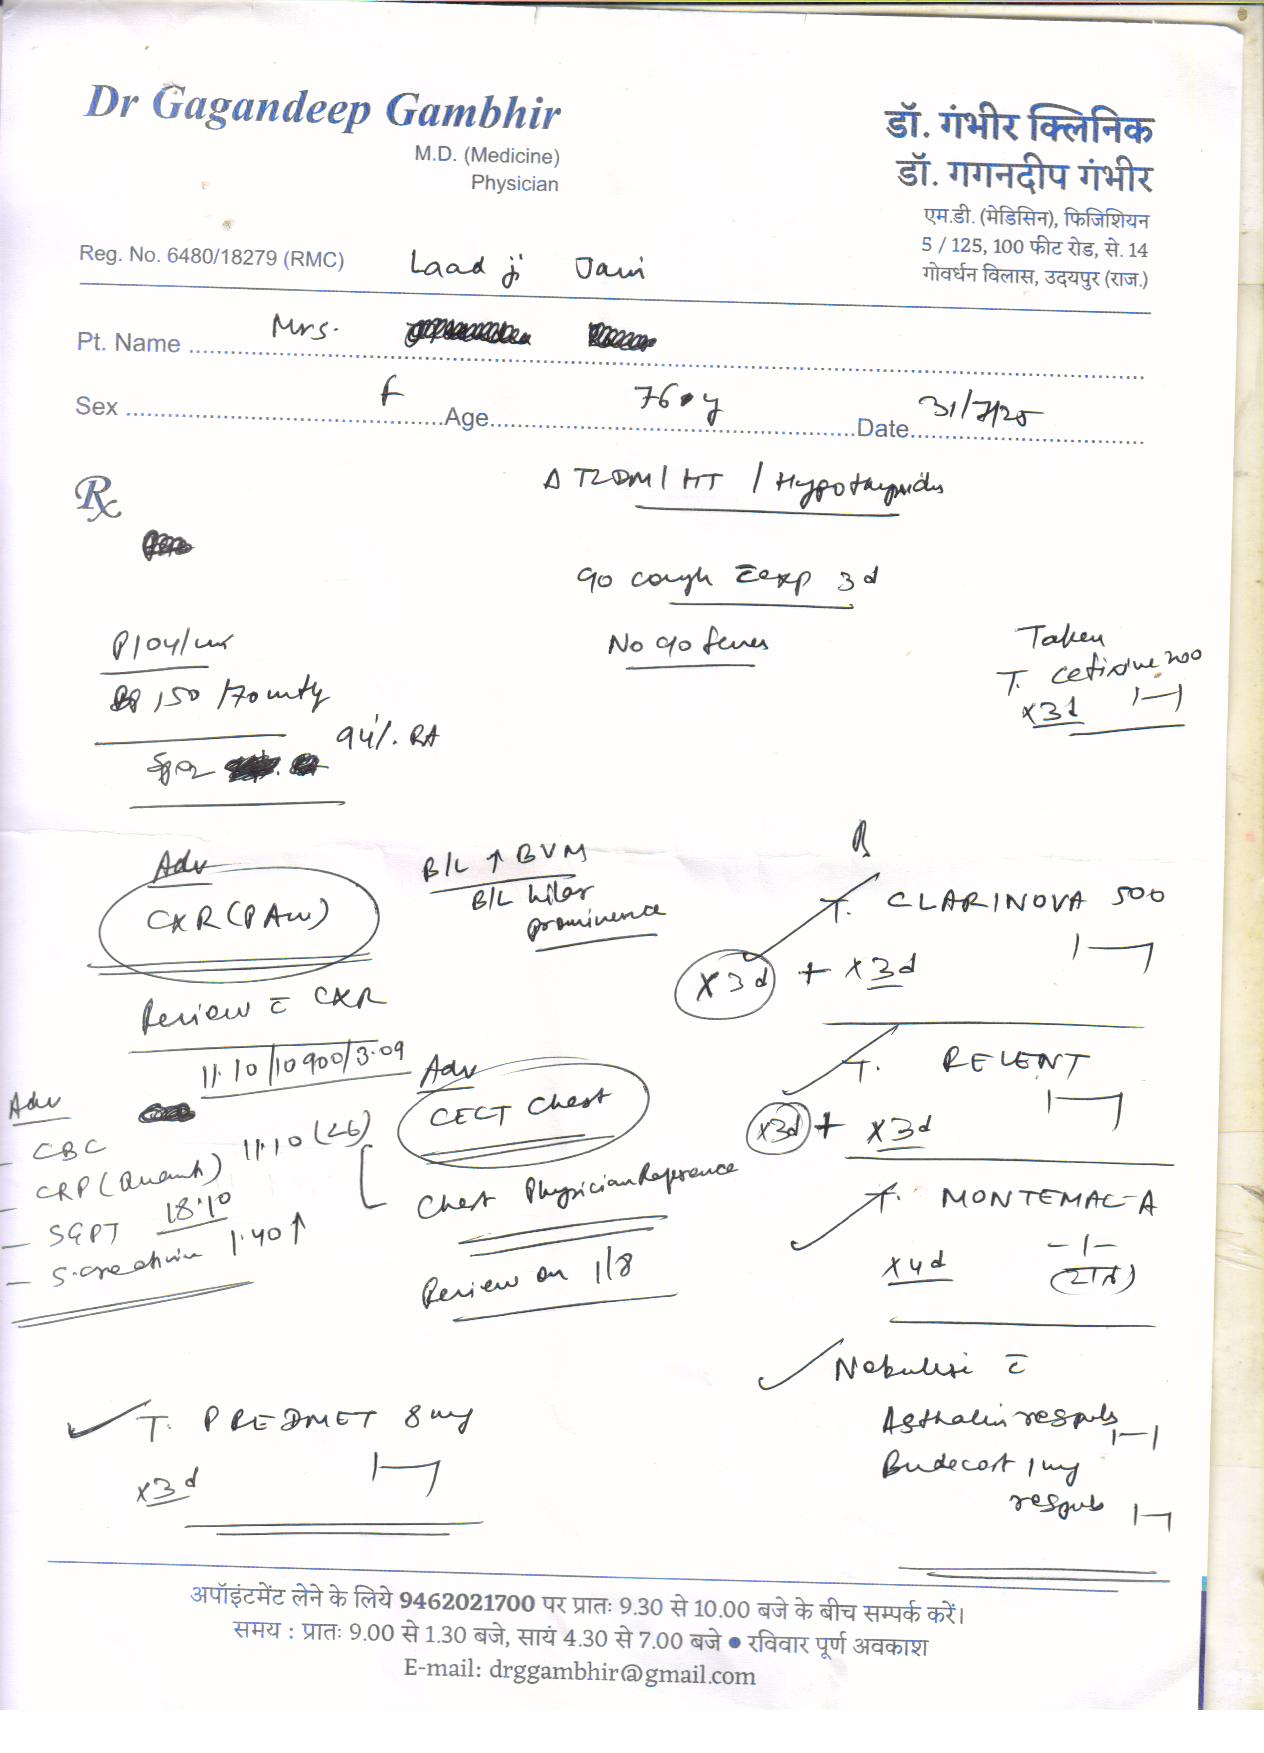 Dr Gagandeep Gambhir
M.D. (Medicine)
Physician
Reg. No. 6480/18279 (RMC)
डॉ. गंभीर क्लिनिक
डॉ. गगनदीप गंभीर
एम.डी. (मेडिसिन), फिजिशियन
5 / 125, 100 फीट रोड, से. 14
गोवर्धन विलास, उदयपुर (राज.)
Laad ji Jain
Pt. Name Mrs.
Sex F Age 76 y Date 31/7/25
Rx
Δ T2DM / HT / Hypothyroidism
c/o cough c̄ exp 3d
No c/o fever
P 104/min
BP 150/70 mmHg
SpO2 94% RA
Taken
T. cefixime 200
x 3d 1-1
Adv
CXR (PAv)
B/L ↑ BVM
B/L hilar
prominence
Review c̄ CXR
11.10/10900/3.09
Adv
- CBC 11.10 (L6)
- CRP (Quant)
- SGPT 18.10
- S. creatinine 1.40 ↑
Adv
CECT Chest
Chest Physician Reference
Review on 1/8
T. PREDMET 8 mg
x 3d 1-1
R
T. CLARINOVA 500
x 3d + x 3d 1-1
T. RELENT
x 3d + x 3d 1-1
T. MONTEMAC-A
x 4d -1-
(रात)
Nebulise c̄
Asthalin respules 1-1
Budecort 1 mg
respules 1-1
अपॉइंटमेंट लेने के लिये 9462021700 पर प्रातः 9.30 से 10.00 बजे के बीच सम्पर्क करें।
समय : प्रातः 9.00 से 1.30 बजे, सायं 4.30 से 7.00 बजे ● रविवार पूर्ण अवकाश
E-mail: drggambhir@gmail.com